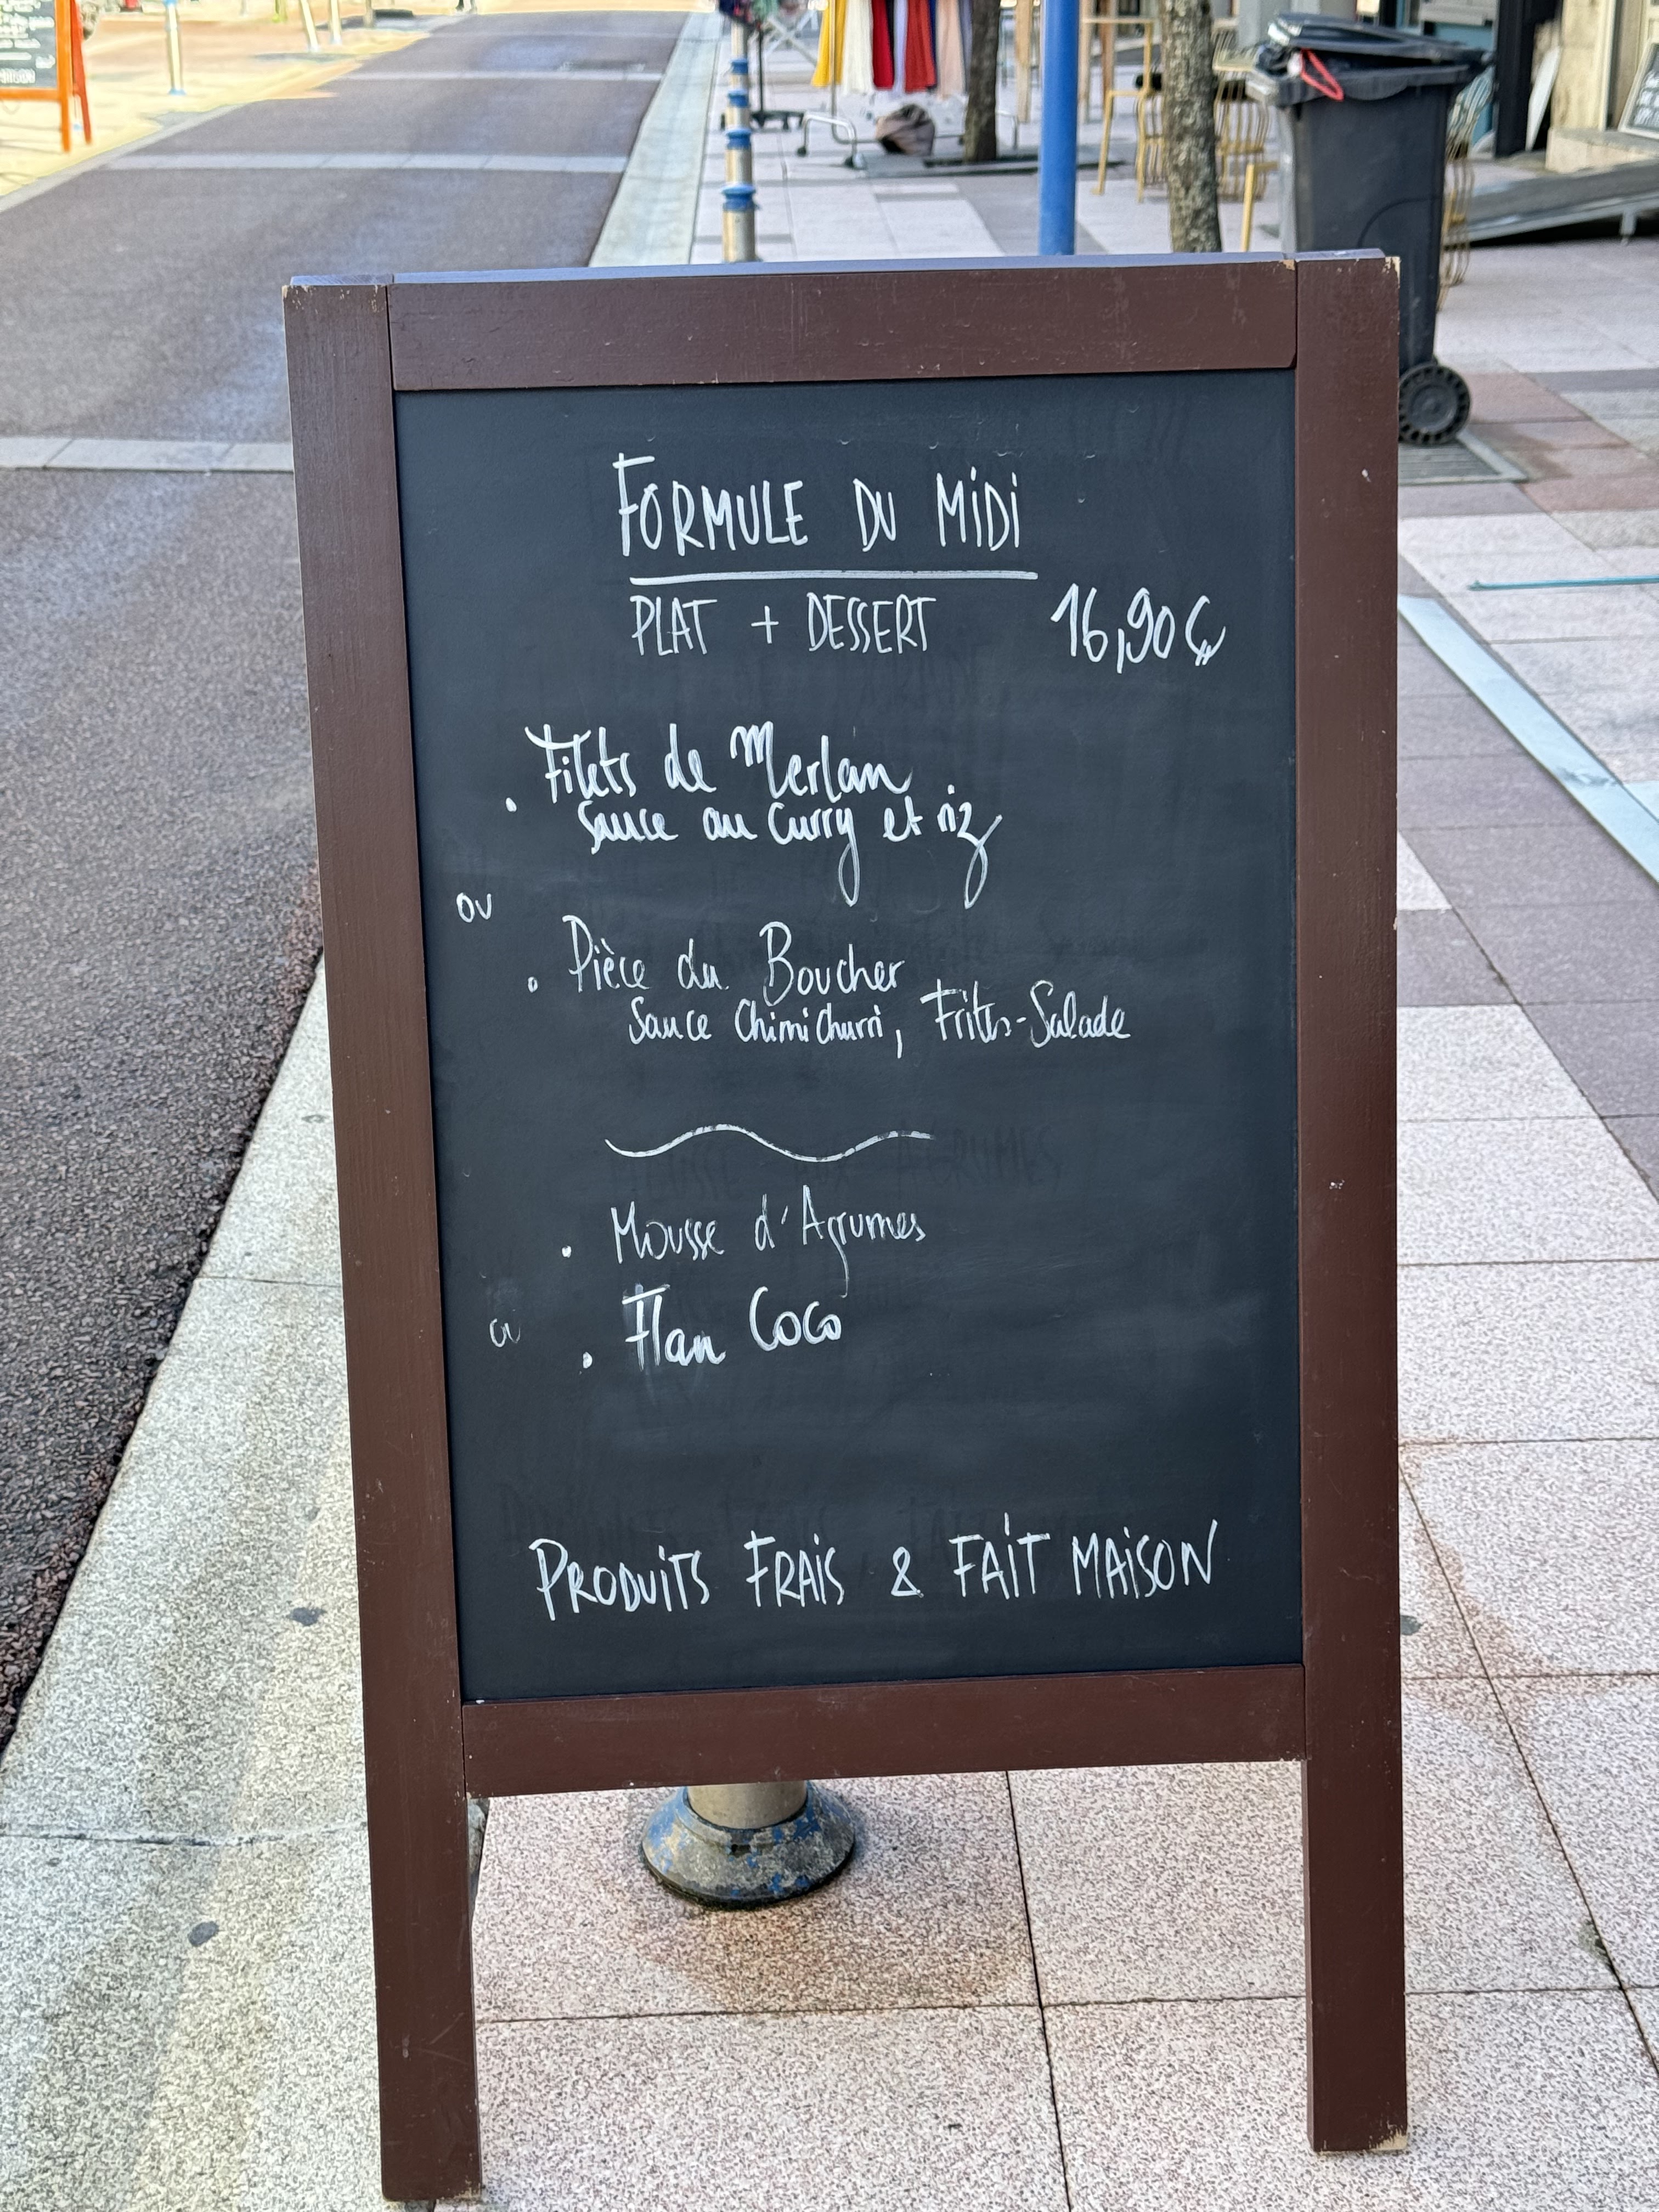 FORMULE DU MIDI
PLAT + DESSERT 16,90€
. Filets de Merlan
Sauce au Curry et riz
ou
. Pièce du Boucher
Sauce Chimichurri, Frites-Salade
. Mousse d'Agrumes
ou
. Flan Coco
PRODUITS FRAIS & FAIT MAISON